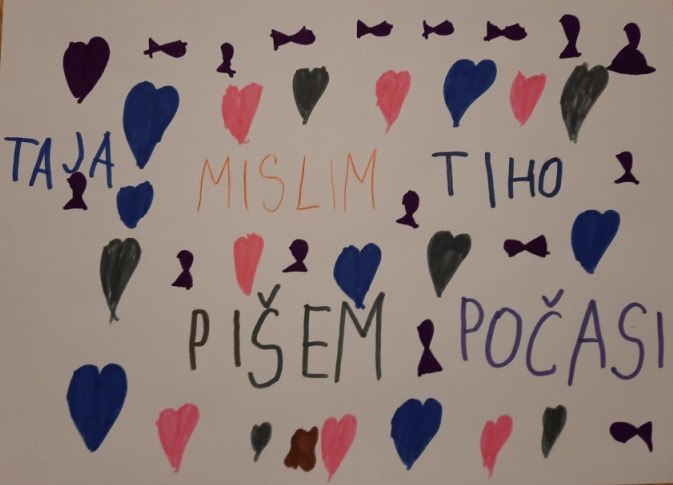 TAJA MISLIM TIHO
PIŠEM POČASI